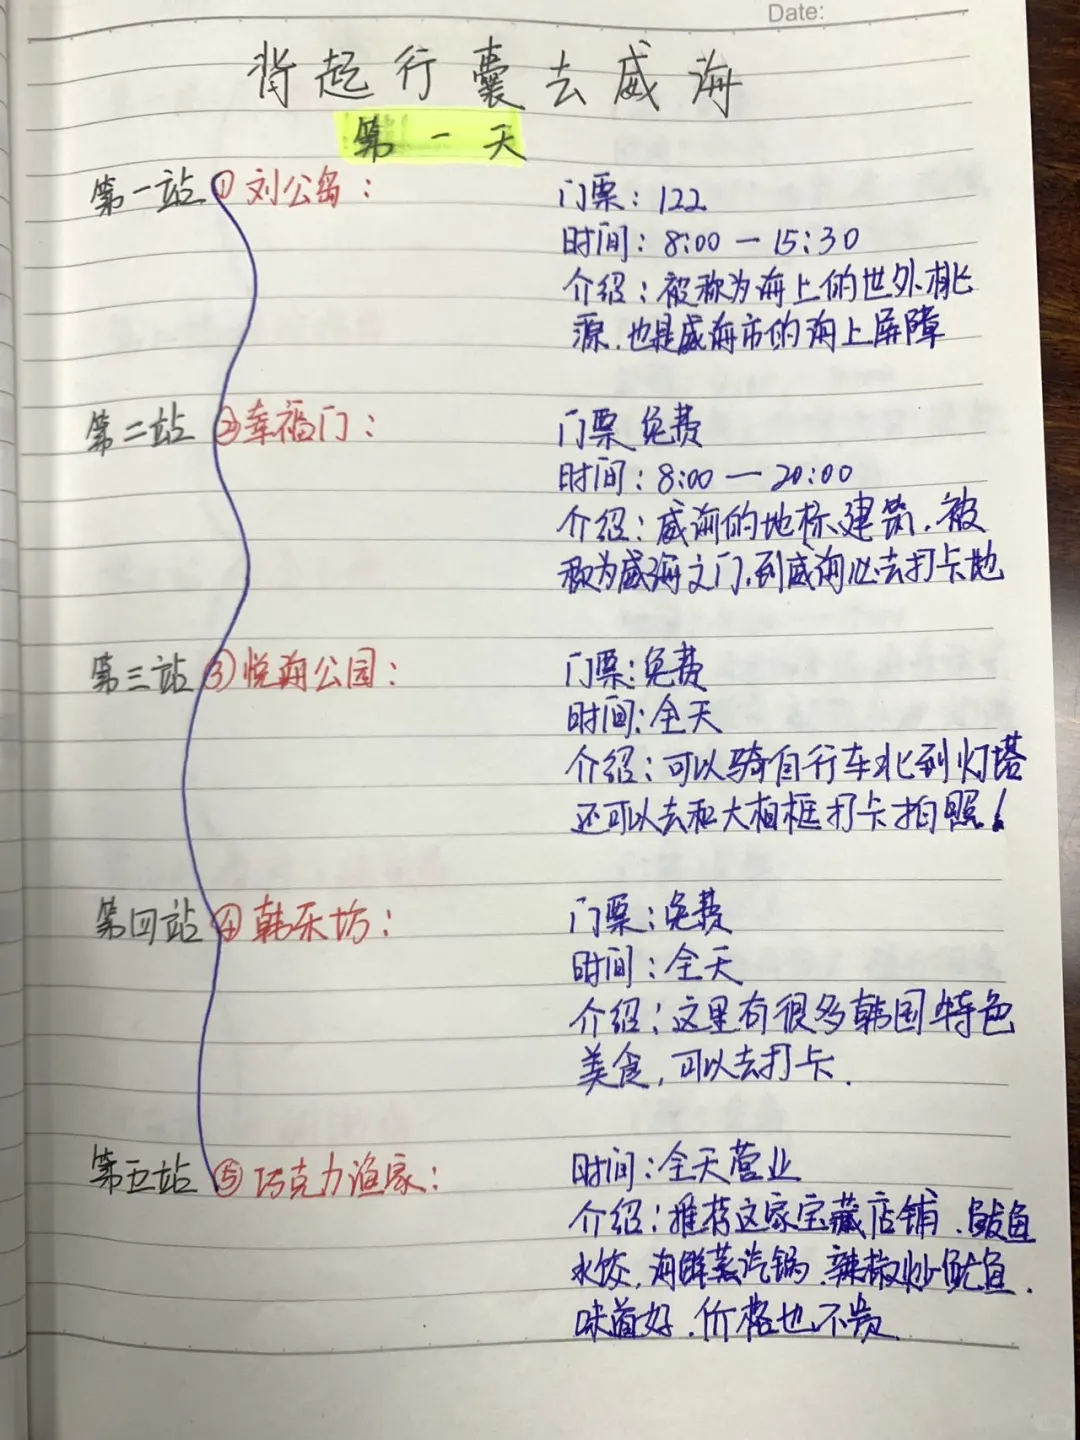 Date:
背起行囊去威海
第一天
第一站 ①刘公岛：
门票：122
时间：8:00 — 15:30
介绍：被称为海上的世外桃
源，也是威海市的海上屏障
第二站 ②幸福门：
门票 免费
时间：8:00 — 20:00
介绍：威海的地标建筑，被
称为威海之门，到威海必去打卡地
第三站 ③悦海公园：
门票：免费
时间：全天
介绍：可以骑自行车北到灯塔
还可以去和大相框打卡拍照！
第四站 ④韩乐坊：
门票：免费
时间：全天
介绍：这里有很多韩国特色
美食，可以去打卡.
第五站 ⑤巧克力渔家：
时间：全天营业
介绍：推荐这家宝藏店铺、鲅鱼
水饺，海鲜蒸汽锅、辣椒炒鱿鱼.
味道好，价格也不贵